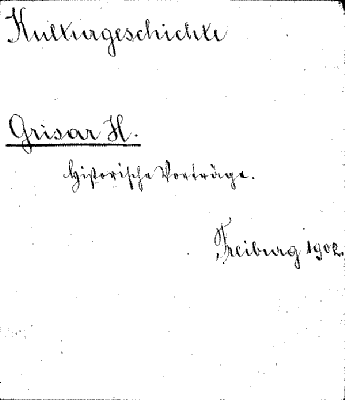 Kulturgeschichte
Grisar H.
Historische Vorträge.
Freiburg 1902.